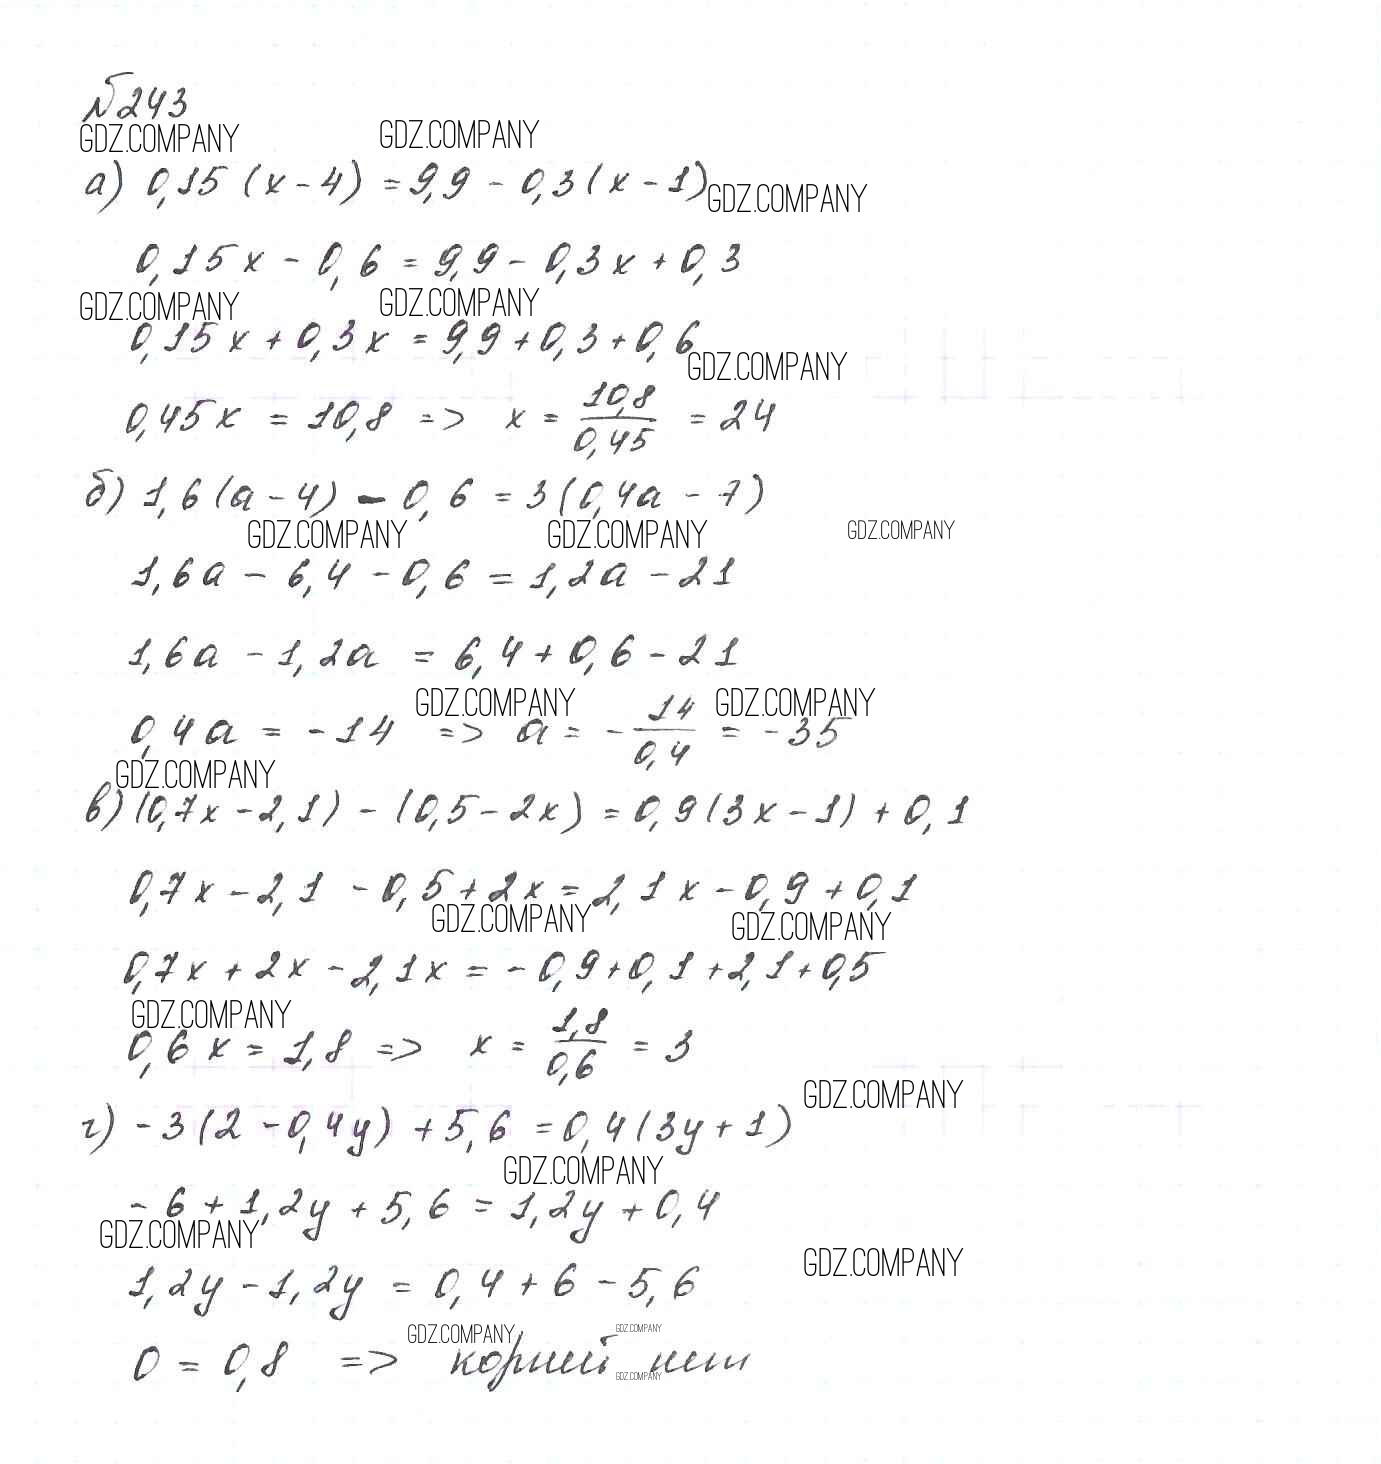 №243
GDZ.COMPANY GDZ.COMPANY
а) 0,15 (x - 4) = 9,9 - 0,3 (x - 1)
GDZ.COMPANY
0,15x - 0,6 = 9,9 - 0,3x + 0,3
GDZ.COMPANY GDZ.COMPANY
0,15x + 0,3x = 9,9 + 0,3 + 0,6
GDZ.COMPANY
0,45x = 10,8 => x = 10,8/0,45 = 24
б) 1,6 (a - 4) - 0,6 = 3 (0,4a - 7)
GDZ.COMPANY GDZ.COMPANY GDZ.COMPANY
1,6a - 6,4 - 0,6 = 1,2a - 21
1,6a - 1,2a = 6,4 + 0,6 - 21
GDZ.COMPANY GDZ.COMPANY
0,4a = -14 => a = - 14/0,4 = -35
GDZ.COMPANY
в) (0,7x - 2,1) - (0,5 - 2x) = 0,9 (3x - 1) + 0,1
0,7x - 2,1 - 0,5 + 2x = 2,1x - 0,9 + 0,1
GDZ.COMPANY GDZ.COMPANY
0,7x + 2x - 2,1x = - 0,9 + 0,1 + 2,1 + 0,5
GDZ.COMPANY
0,6x = 1,8 => x = 1,8/0,6 = 3
GDZ.COMPANY
г) -3 (2 - 0,4y) + 5,6 = 0,4 (3y + 1)
GDZ.COMPANY
- 6 + 1,2y + 5,6 = 1,2y + 0,4
GDZ.COMPANY
GDZ.COMPANY
1,2y - 1,2y = 0,4 + 6 - 5,6
GDZ.COMPANY GDZ.COMPANY
0 = 0,8 => корней нет
GDZ.COMPANY